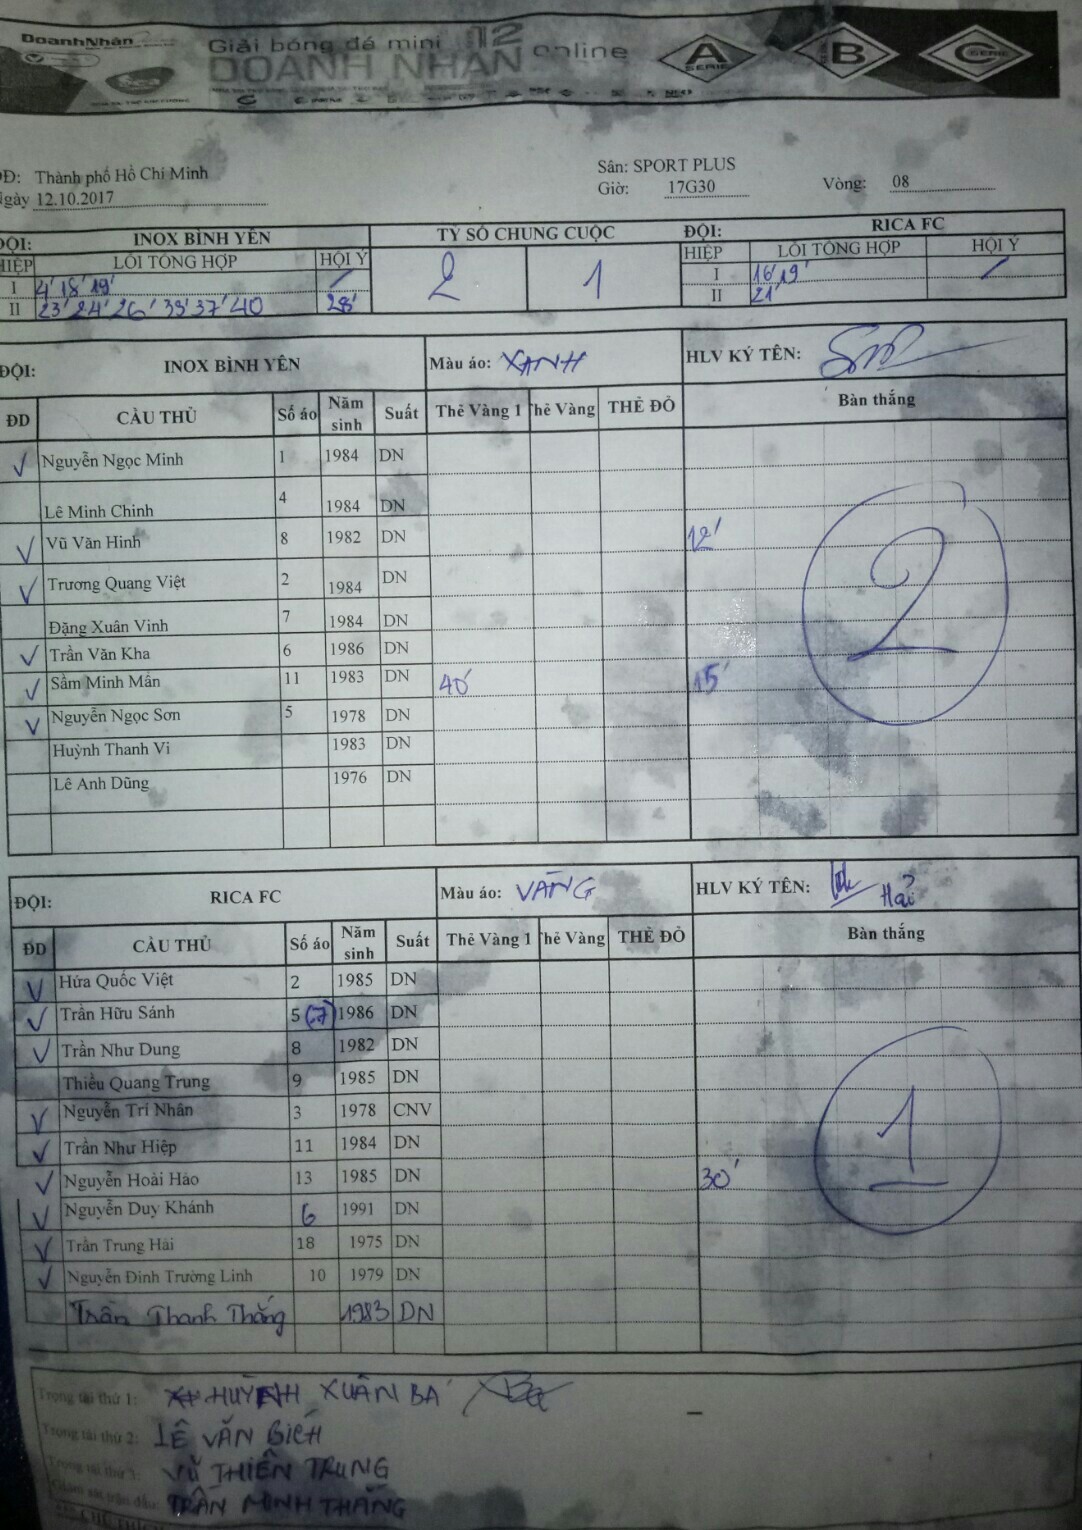 DoanhNhân
Giải bóng đá mini 12 online
DOANH NHÂN
A SERIE
B
C SERIE
ĐĐ: Thành phố Hồ Chí Minh
Sân: SPORT PLUS
Ngày 12.10.2017
Giờ: 17G30
Vòng: 08
ĐỘI: INOX BÌNH YÊN TỶ SỐ CHUNG CUỘC ĐỘI: RICA FC
HIỆP LỖI TỔNG HỢP HỘI Ý 2 1 HIỆP LỖI TỔNG HỢP HỘI Ý
I 4' 18' 19' / I 16' 19' /
II 23' 24' 26' 33' 37' 40 28' II 21'
ĐỘI: INOX BÌNH YÊN Màu áo: XANH HLV KÝ TÊN:
ĐD CẦU THỦ Số áo Năm sinh Suất Thẻ Vàng 1 Thẻ Vàng THẺ ĐỎ Bàn thắng
V Nguyễn Ngọc Minh 1 1984 DN
Lê Minh Chinh 4 1984 DN
V Vũ Văn Hinh 8 1982 DN 12'
V Trương Quang Việt 2 1984 DN
2
Đặng Xuân Vinh 7 1984 DN
V Trần Văn Kha 6 1986 DN
V Sầm Minh Mẫn 11 1983 DN 40' 15'
V Nguyễn Ngọc Sơn 5 1978 DN
Huỳnh Thanh Vi 1983 DN
Lê Anh Dũng 1976 DN
ĐỘI: RICA FC Màu áo: VÀNG HLV KÝ TÊN: Hải
ĐD CẦU THỦ Số áo Năm sinh Suất Thẻ Vàng 1 Thẻ Vàng THẺ ĐỎ Bàn thắng
V Hứa Quốc Việt 2 1985 DN
V Trần Hữu Sánh 5 (7) 1986 DN
V Trần Như Dung 8 1982 DN
Thiều Quang Trung 9 1985 DN
V Nguyễn Trí Nhân 3 1978 CNV
1
V Trần Như Hiệp 11 1984 DN
V Nguyễn Hoài Hảo 13 1985 DN 30'
V Nguyễn Duy Khánh 6 1991 DN
V Trần Trung Hải 18 1975 DN
V Nguyễn Đình Trường Linh 10 1979 DN
Trần Thanh Thắng 1983 DN
Trọng tài thứ 1: HUỲNH XUÂN BÁ
Trọng tài thứ 2: LÊ VĂN
Trọng tài thứ 3: VŨ THIÊN TRUNG
Giám sát trận đấu: TRẦN MINH THẮNG